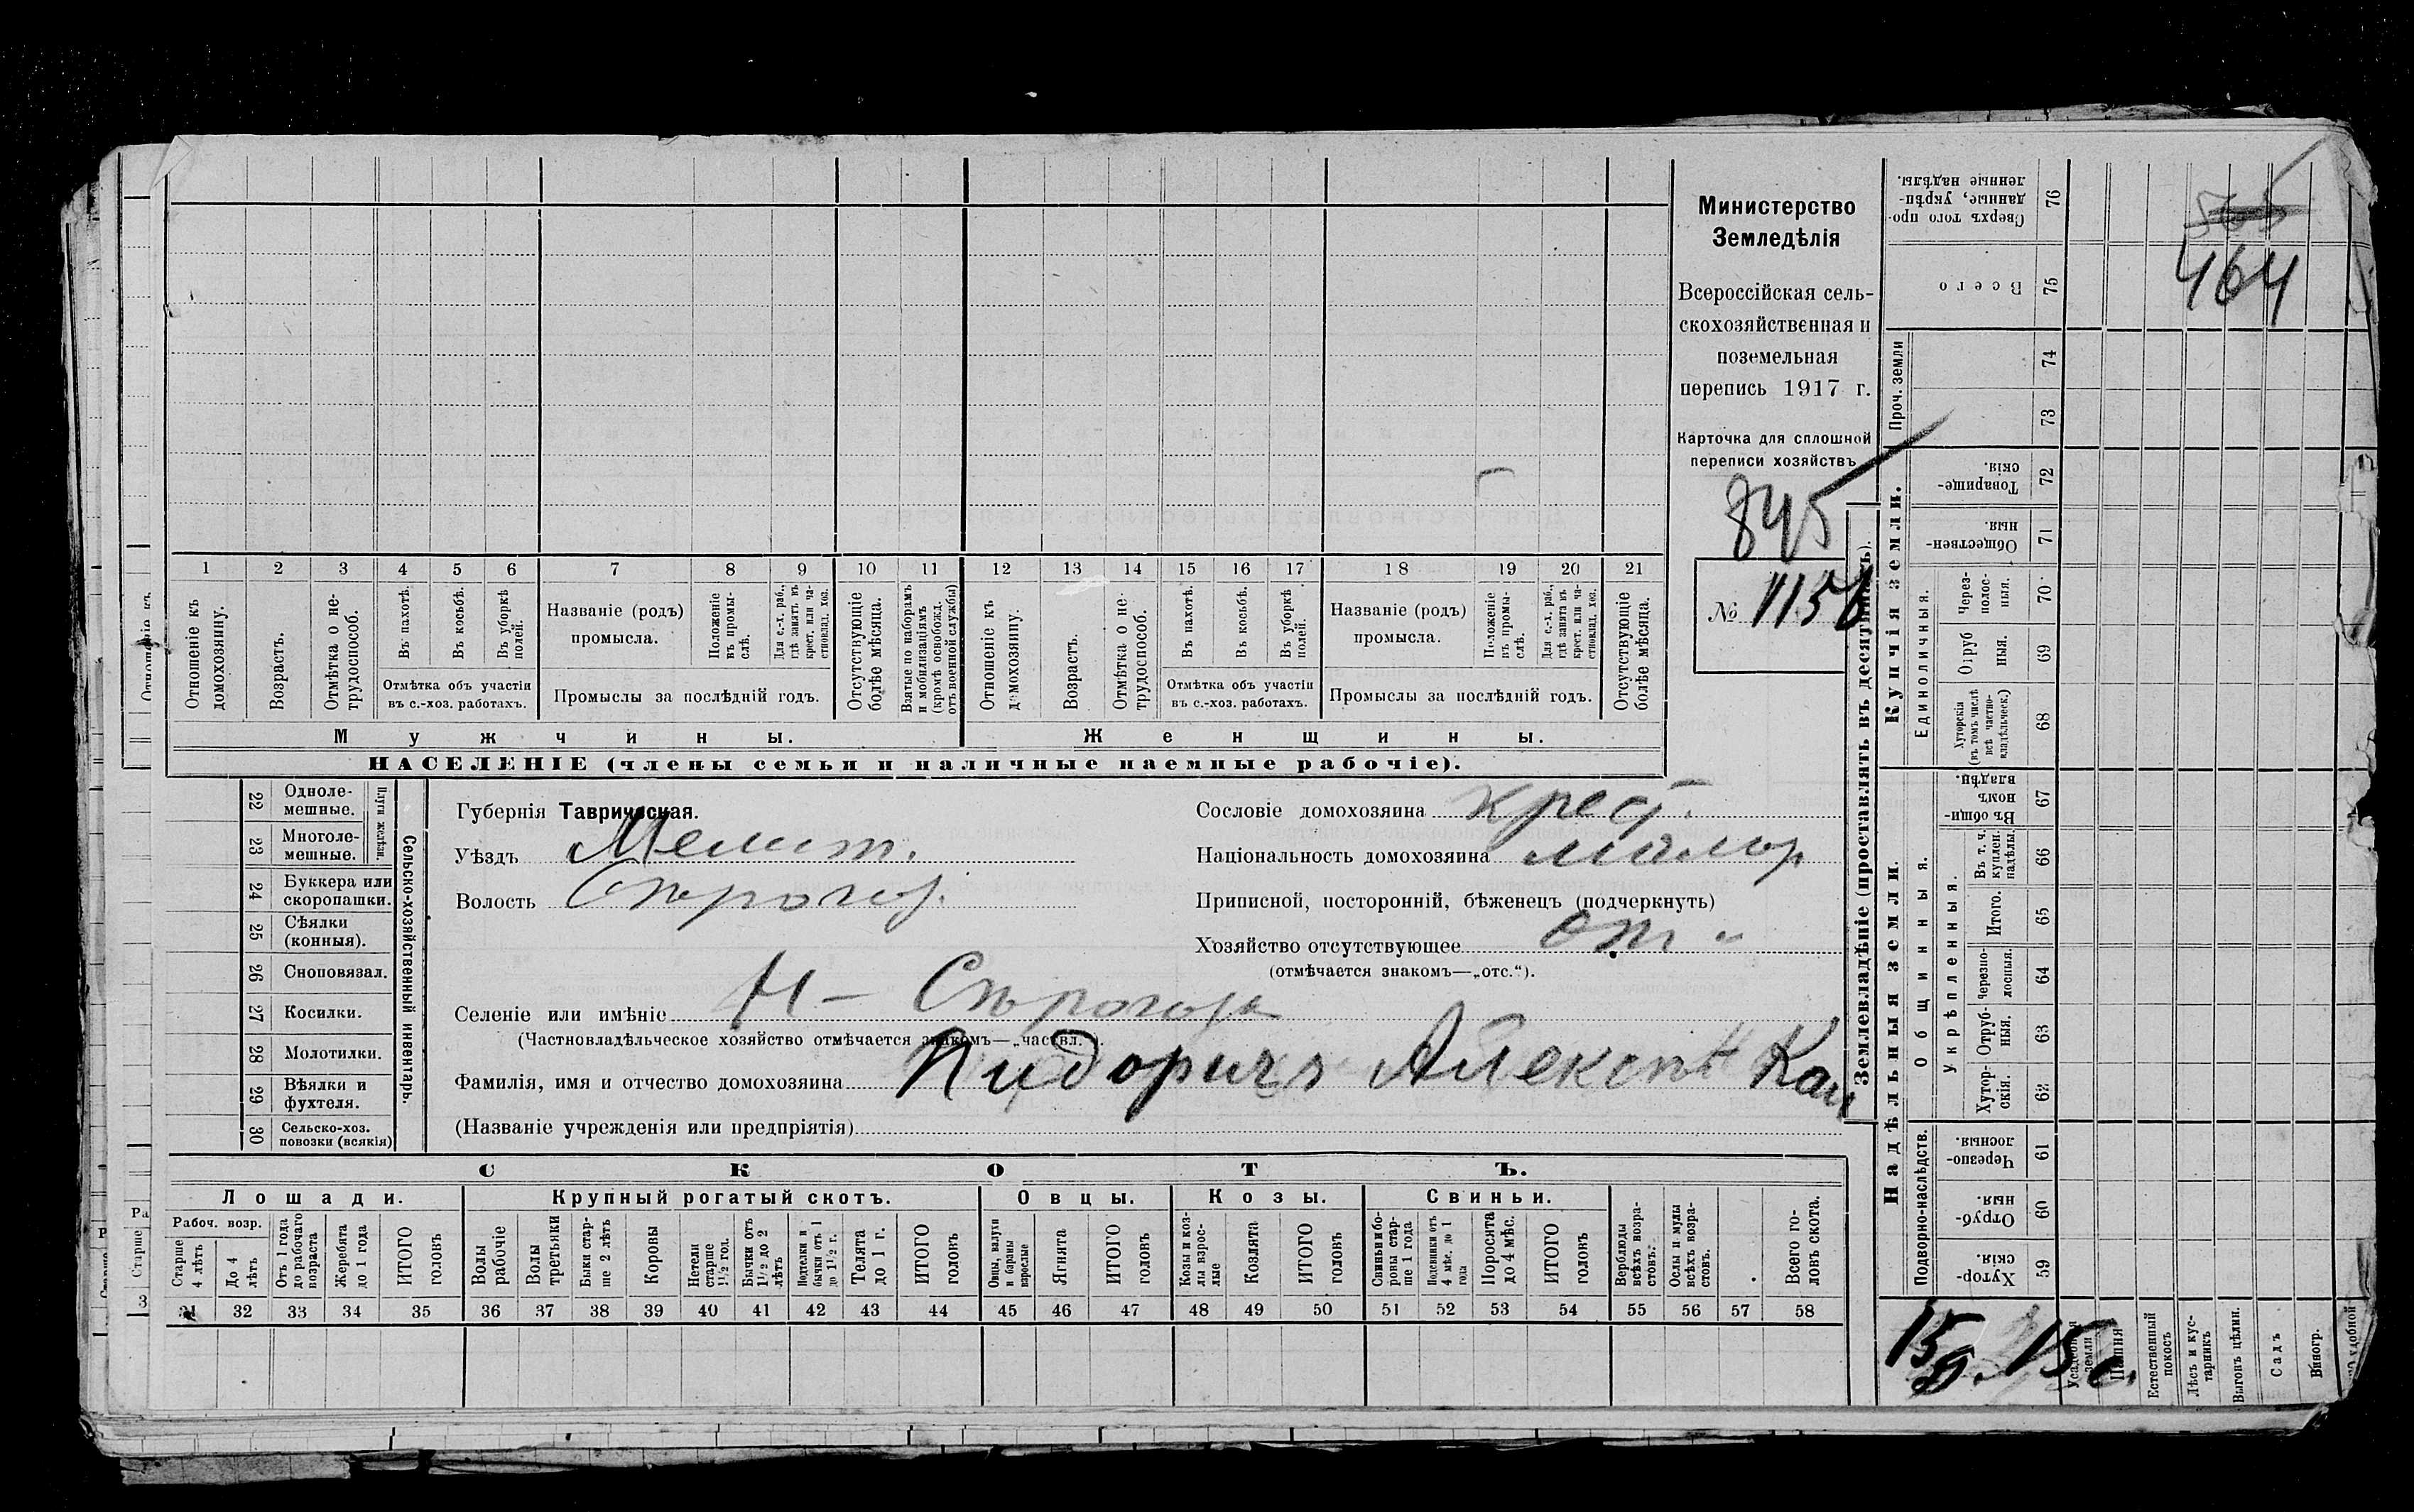 Министерство
Земледѣлія
Всероссійская сель-
скохозяйственная и
поземельная
перепись 1917 г.
Карточка для сплошной
переписи хозяйствъ
845
№ 1156
1 2 3 4 5 6 7 8 9 10 11 12 13 14 15 16 17 18 19 20 21
Отношеніе къ домохозяину.
Возрастъ.
Отмѣтка о не-трудоспособ.
Въ пахотѣ.
Въ косьбѣ.
Въ уборкѣ полей.
Отмѣтка объ участіи
въ с.-хоз. работахъ.
Названіе (родъ)
промысла.
Положеніе въ промы-слѣ.
Для с.-х. раб., гдѣ занятъ въ крест. или ча-стновлад. хоз.
Промыслы за послѣдній годъ.
Отсутствующіе болѣе мѣсяца.
Взятые по наборамъ и мобилизаціямъ (кромѣ освобожд. отъ военной службы)
Отношеніе къ домохозяину.
Возрастъ.
Отмѣтка о не-трудоспособ.
Въ пахотѣ.
Въ косьбѣ.
Въ уборкѣ полей.
Отмѣтка объ участіи
въ с.-хоз. работахъ.
Названіе (родъ)
промысла.
Положеніе въ промы-слѣ.
Для с.-х. раб., гдѣ занята въ крест. или ча-стновлад. хоз.
Промыслы за послѣдній годъ.
Отсутствующіе болѣе мѣсяца.
Мужчины.
Женщины.
НАСЕЛЕНІЕ (члены семьи и наличные наемные рабочіе).
22 Одноле-мешные.
23 Многоле-мешные.
Плуги желѣзн.
24 Буккера или скоропашки.
25 Сѣялки (конныя).
26 Сноповязал.
27 Косилки.
28 Молотилки.
29 Вѣялки и фухтеля.
30 Сельско-хоз. повозки (всякія)
Сельско-хозяйственный инвентарь.
Губернія Таврическая.
Уѣздъ Мелит.
Волость Сѣрогоз.
Селеніе или имѣніе Н - Сѣрогозы
(Частновладѣльческое хозяйство отмѣчается знакомъ—„частвл.“).
Фамилія, имя и отчество домохозяина Пидоричъ Алексѣй
(Названіе учрежденія или предпріятія)
Сословіе домохозяина крест.
Національность домохозяина малор
Приписной, посторонній, бѣженецъ (подчеркнуть)
Хозяйство отсутствующее
(отмѣчается знакомъ—„отс.“).
СКОТЪ.
Лошади.
Крупный рогатый скотъ.
Овцы.
Козы.
Свиньи.
Рабоч. возр.
Старше 4 лѣтъ
До 4 лѣтъ
Отъ 1 года до рабочаго возраста
Жеребята до 1 года
ИТОГО головъ
Волы рабочіе
Волы третьяки
Быки стар-ше 2 лѣтъ
Коровы
Нетели старше 1 1/2 год.
Бычки отъ 1 1/2 до 2 лѣтъ
Подтелки и бычки отъ 1 до 1 1/2 г.
Телята до 1 г.
ИТОГО головъ
Овцы, валухи и бараны взрослые
Ягнята
ИТОГО головъ
Козы и коз-лы взрос-лые
Козлята
ИТОГО головъ
Свиньи и бо-ровы стар-ше 1 года
Подсвинки отъ 4 мѣс. до 1 года
Поросята до 4 мѣс.
ИТОГО головъ
Верблюды всѣхъ возра-стовъ.
Ослы и мулы всѣхъ возра-стовъ.
Всего го-ловъ скота.
31 32 33 34 35 36 37 38 39 40 41 42 43 44 45 46 47 48 49 50 51 52 53 54 55 56 57 58
Землевладѣніе (проставлять въ десятинахъ).
Купчія земли.
Надѣльныя земли.
Сверхъ того про-данные, укрѣп-ленные надѣлы. 76
Всего 75
Проч. земли 74
73
Товарище-скія. 72
Обществен-ныя. 71
Единоличныя.
Через-полос-ныя. 70
Отруб ныя. 69
Хуторскія (въ томъ числѣ всѣ частно-владѣльческ.) 68
Общинныя.
Въ общи-номъ владѣн. 67
Укрѣпленныя.
Въ т. ч. куплен. надѣлы. 66
Итого. 65
Черезпо-лосныя. 64
Отруб-ныя. 63
Хутор-скія. 62
Подворно-наслѣдств.
Черезпо-лосныя. 61
Отруб-ныя. 60
Хутор-скія. 59
Усадебная земля
Пашня
Естественный покосъ
Лѣсъ и кус-тарникъ
Выгонъ цѣлин.
Садъ
Виногр.
565
464
15 д. 15 с.